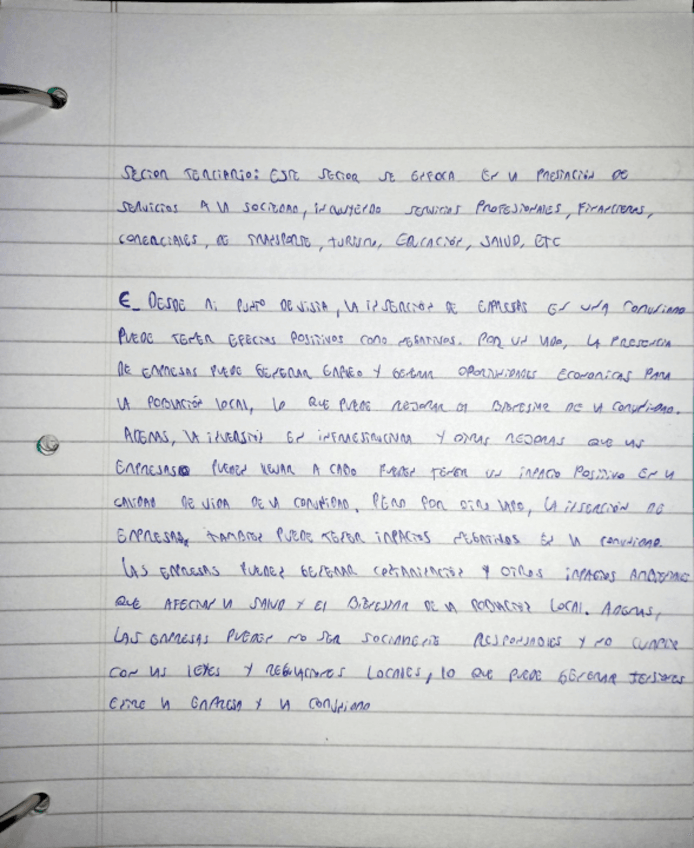 SECTOR TERCIARIO: ESTE SECTOR SE ENFOCA EN LA PRESTACIÓN DE
SERVICIOS A LA SOCIEDAD, INCLUYENDO SERVICIOS PROFESIONALES, FINANCIEROS,
COMERCIALES, DE TRANSPORTE, TURISMO, EDUCACIÓN, SALUD, ETC
E_ DESDE MI PUNTO DE VISTA, LA INSERCIÓN DE EMPRESAS EN UNA COMUNIDAD
PUEDE TENER EFECTOS POSITIVOS COMO NEGATIVOS. POR UN LADO, LA PRESENCIA
DE EMPRESAS PUEDE GENERAR EMPLEO Y GENERAR OPORTUNIDADES ECONOMICAS PARA
LA POBLACIÓN LOCAL, LO QUE PUEDE MEJORAR EL BIENESTAR DE LA COMUNIDAD.
ADEMAS, LA INVERSIÓN EN INFRAESTRUCTURA Y OTRAS MEJORAS QUE LAS
EMPRESAS PUEDEN LLEVAR A CABO PUEDEN TENER UN IMPACTO POSITIVO EN LA
CALIDAD DE VIDA DE LA COMUNIDAD. PERO POR OTRO LADO, LA INSERCIÓN DE
EMPRESAS, TAMBIEN PUEDE TENER IMPACTOS NEGATIVOS EN LA COMUNIDAD.
LAS EMPRESAS PUEDEN GENERAR CONTAMINACIÓN Y OTROS IMPACTOS
QUE AFECTAN LA SALUD Y EL BIENESTAR DE LA POBLACIÓN LOCAL. ADEMAS,
LAS EMPRESAS PUEDEN NO SER SOCIALMENTE RESPONSABLES Y NO CUMPLIR
CON LAS LEYES Y REGULACIONES LOCALES, LO QUE PUEDE GENERAR TENSIONES
ENTRE LA EMPRESA Y LA COMUNIDAD